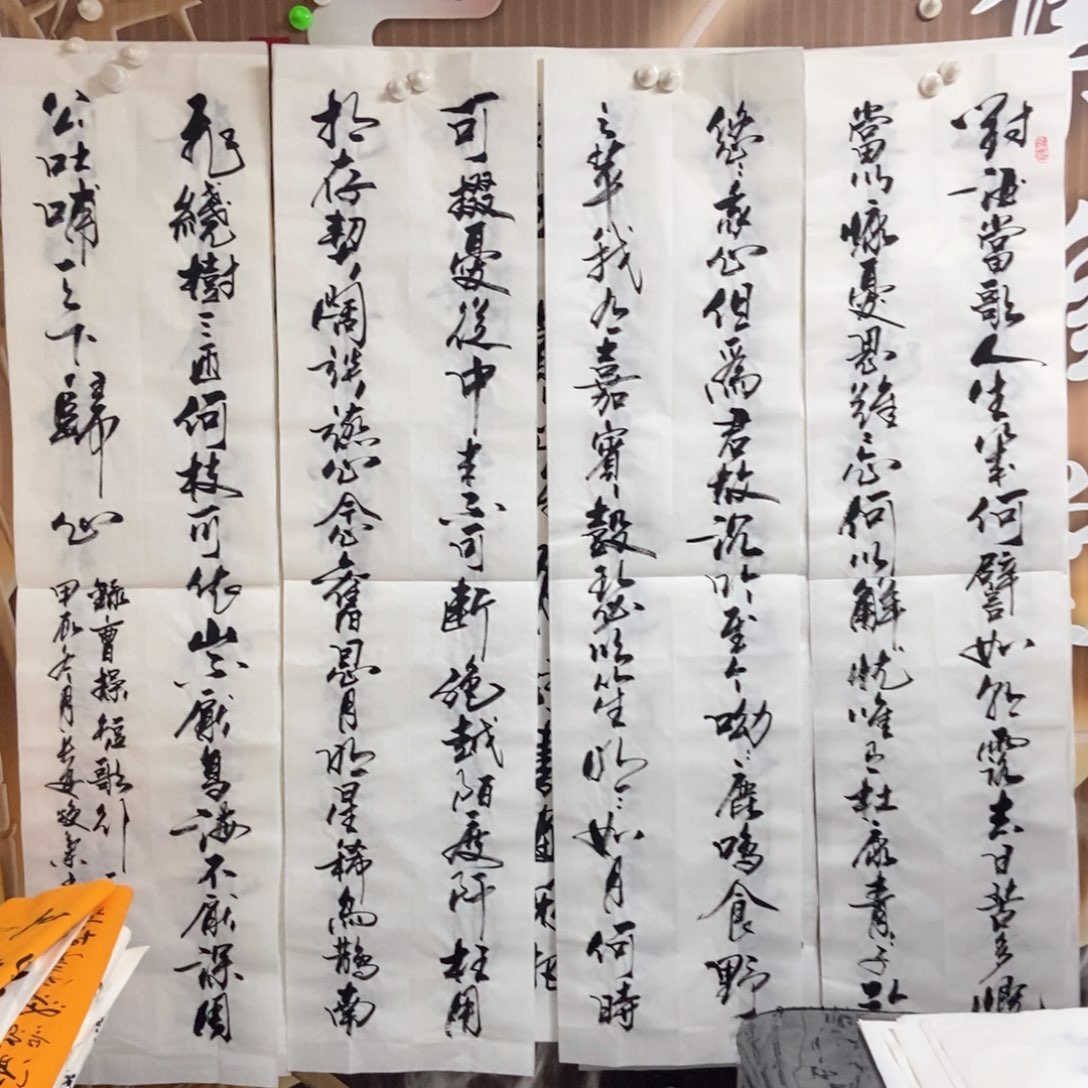 對酒當歌人生幾何譬如朝露去日苦多慨
當以慷憂思難忘何以解忧唯有杜康青〻子衿
悠〻我心但爲君故沉吟至今呦〻鹿鳴食野
之苹我有嘉賓鼓瑟吹笙明〻如月何時
可掇憂從中来不可斷絶越陌度阡枉用
相存契闊談讌心念舊恩月明星稀烏鵲南
飛繞樹三匝何枝可依山不厭高海不厭深周
公吐哺天下歸心
錄曹操短歌行
甲辰冬月長安